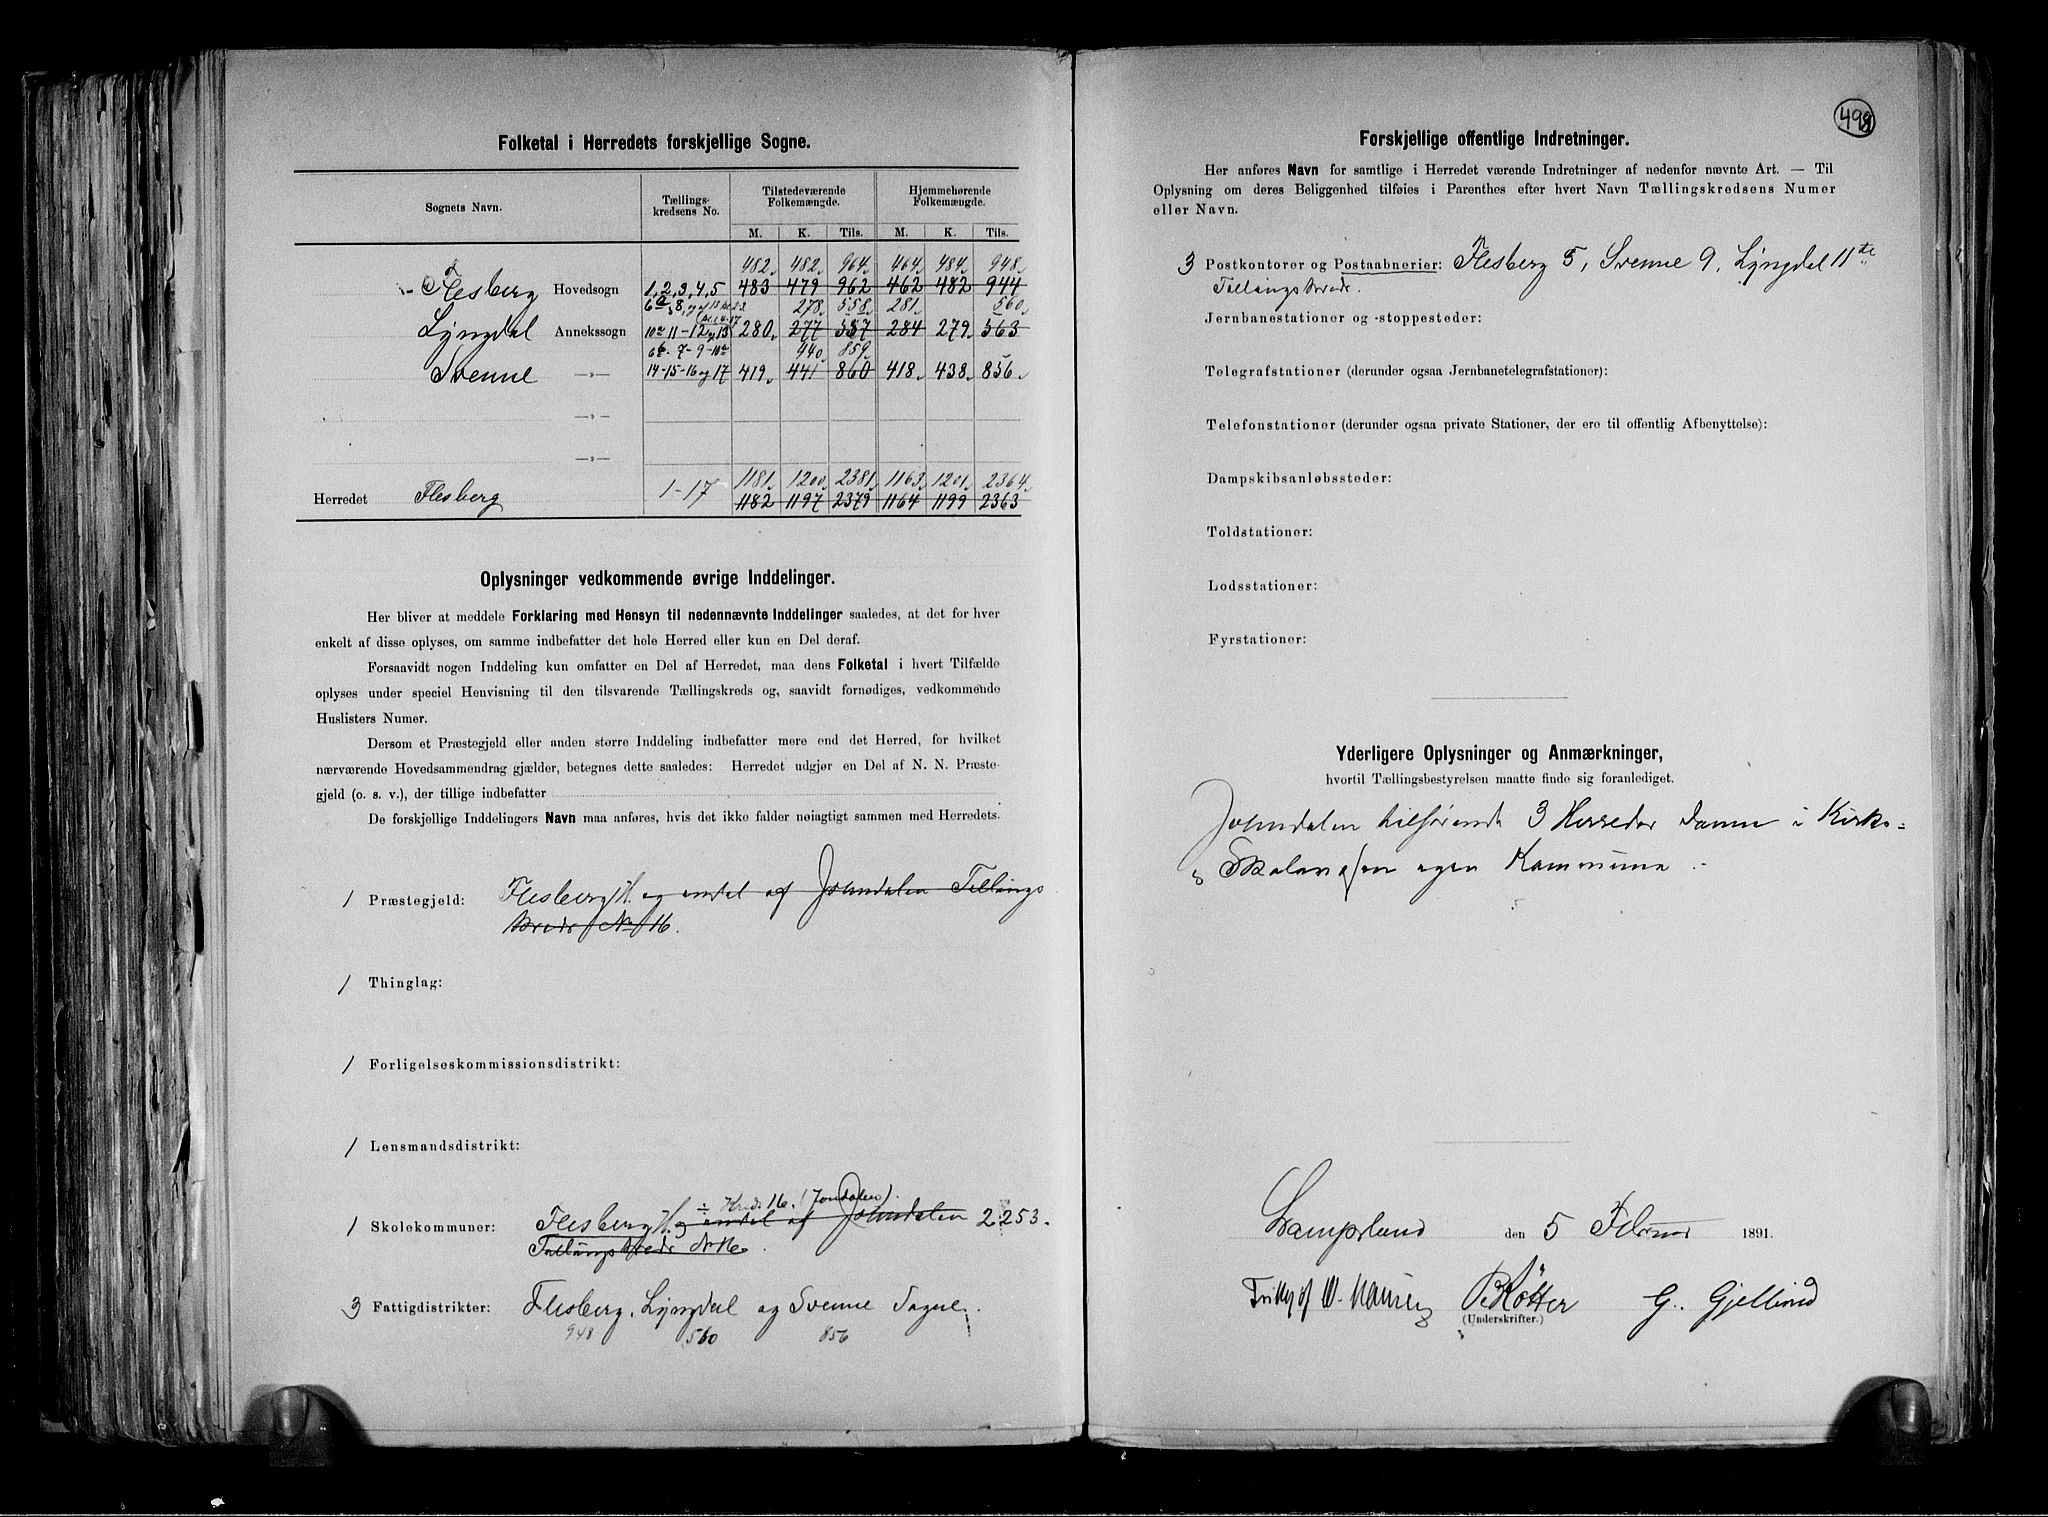 Folketal i Herredets forskjellige Sogne.
Sognets Navn. Tællings-kredsens No. Tilstedeværende Folkemængde. Hjemmehørende Folkemængde.
M. K. Tils. M. K. Tils.
482 482 964 464 484 948
Flesberg Hovedsogn 1, 2, 3, 4, 5 483 479 962 462 482 944
278 558 281 560
Lyngdal Annekssogn 10 11-12 13 280 277 557 284 279 563
6b 7-9-10 440 859
Svenne —„— 14-15-16 og 17 419 441 860 418 438 856
—„—
—„—
1181 1200 2381 1163 1201 2364
Herredet Flesberg 1-17 1182 1197 2379 1164 1199 2363
Oplysninger vedkommende øvrige Inddelinger.
Her bliver at meddele Forklaring med Hensyn til nedennævnte Inddelinger saaledes, at det for hver
enkelt af disse oplyses, om samme indbefatter det hele Herred eller kun en Del deraf.
Forsaavidt nogen Inddeling kun omfatter en Del af Herredet, maa dens Folketal i hvert Tilfælde
oplyses under speciel Henvisning til den tilsvarende Tællingskreds og, saavidt fornødiges, vedkommende
Huslisters Numer.
Dersom et Præstegjeld eller anden større Inddeling indbefatter mere end det Herred, for hvilket
nærværende Hovedsammendrag gjælder, betegnes dette saaledes: Herredet udgjør en Del af N. N. Præste-
gjeld (o. s. v.), der tillige indbefatter
De forskjellige Inddelingers Navn maa anføres, hvis det ikke falder nøiagtigt sammen med Herredets.
1 Præstegjeld: Flesberg H. og endel af Johndalen Tællings
kreds No 16.
1 Thinglag:
1 Forligelseskommissionsdistrikt:
1 Lensmandsdistrikt:
÷ Kreds 16. (Jondalen).
1 Skolekommuner: Flesberg H. og endel af Johndalen 2253.
Tællingskreds No 16
3 Fattigdistrikter: Flesberg, Lyngdal og Svenne Sogne.
948 560 856
499
Forskjellige offentlige Indretninger.
Her anføres Navn for samtlige i Herredet værende Indretninger af nedenfor nævnte Art. — Til
Oplysning om deres Beliggenhed tilføies i Parenthes efter hvert Navn Tællingskredsens Numer
eller Navn.
3 Postkontorer og Postaabnerier: Flesberg 5, Svenne 9, Lyngdal 11te
Tællingskreds.
Jernbanestationer og -stoppesteder:
Telegrafstationer (derunder ogsaa Jernbanetelegrafstationer):
Telefonstationer (derunder ogsaa private Stationer, der ere til offentlig Afbenyttelse):
Dampskibsanløbssteder:
Toldstationer:
Lodsstationer:
Fyrstationer:
Yderligere Oplysninger og Anmærkninger,
hvortil Tællingsbestyrelsen maatte finde sig foranlediget.
Johndalen tilhørende 3 Herreder danne i Kirke-
& Skolevæsen egen Kommune.
Lampeland den 5 Februar 1891.
W. Hansen B Kötter G. Gjellind
(Underskrifter.)